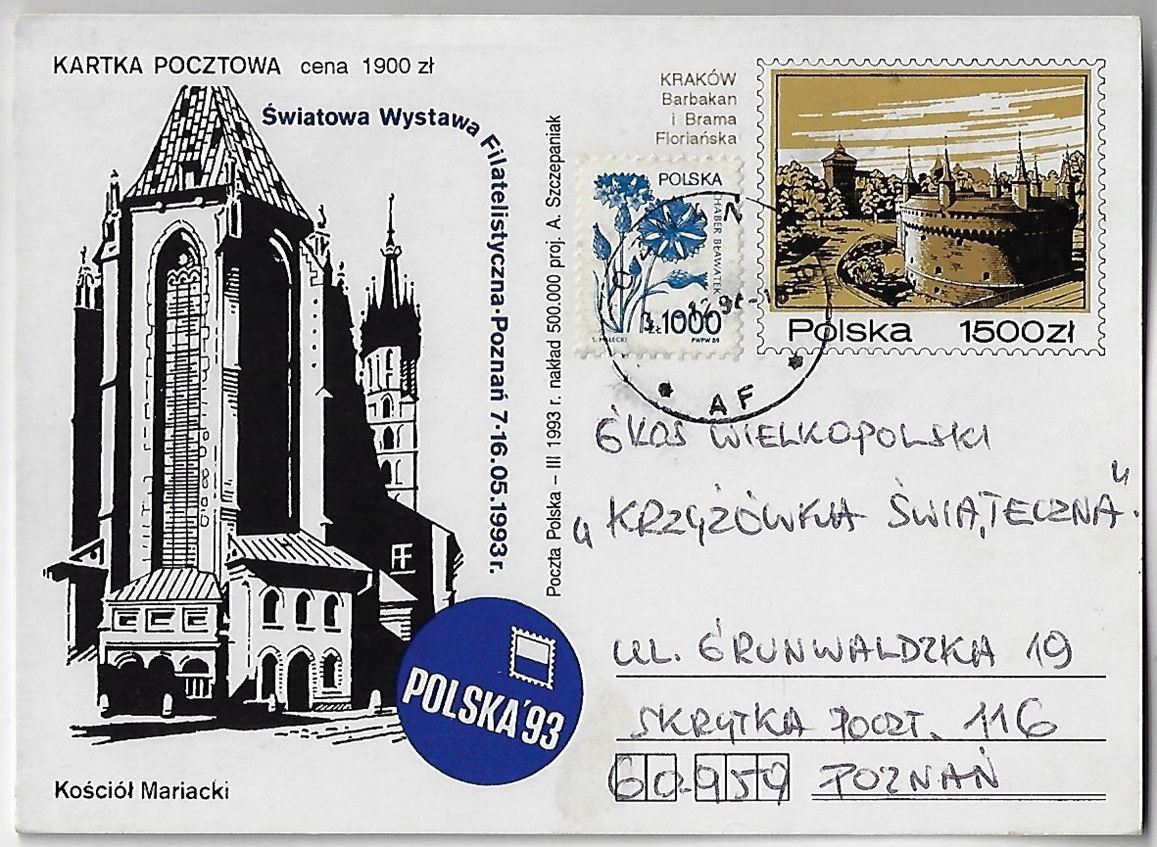 KARTKA POCZTOWA cena 1900 zł
Światowa Wystawa Filatelistyczna·Poznań 7-16.05.1993 r.
Poczta Polska – III 1993 r. nakład 500.000 proj. A. Szczepaniak
KRAKÓW
Barbakan
i Brama
Floriańska
POLSKA
CHABER BŁAWATEK
zł 1000
S. MAŁECKI PWPW 89
Polska 1500zł
AF
GŁOS WIELKOPOLSKI
„KRZYŻÓWKA ŚWIĄTECZNA"
UL. GRUNWALDZKA 19
SKRYTKA POCZT. 116
60-959 POZNAŃ
POLSKA'93
Kościół Mariacki